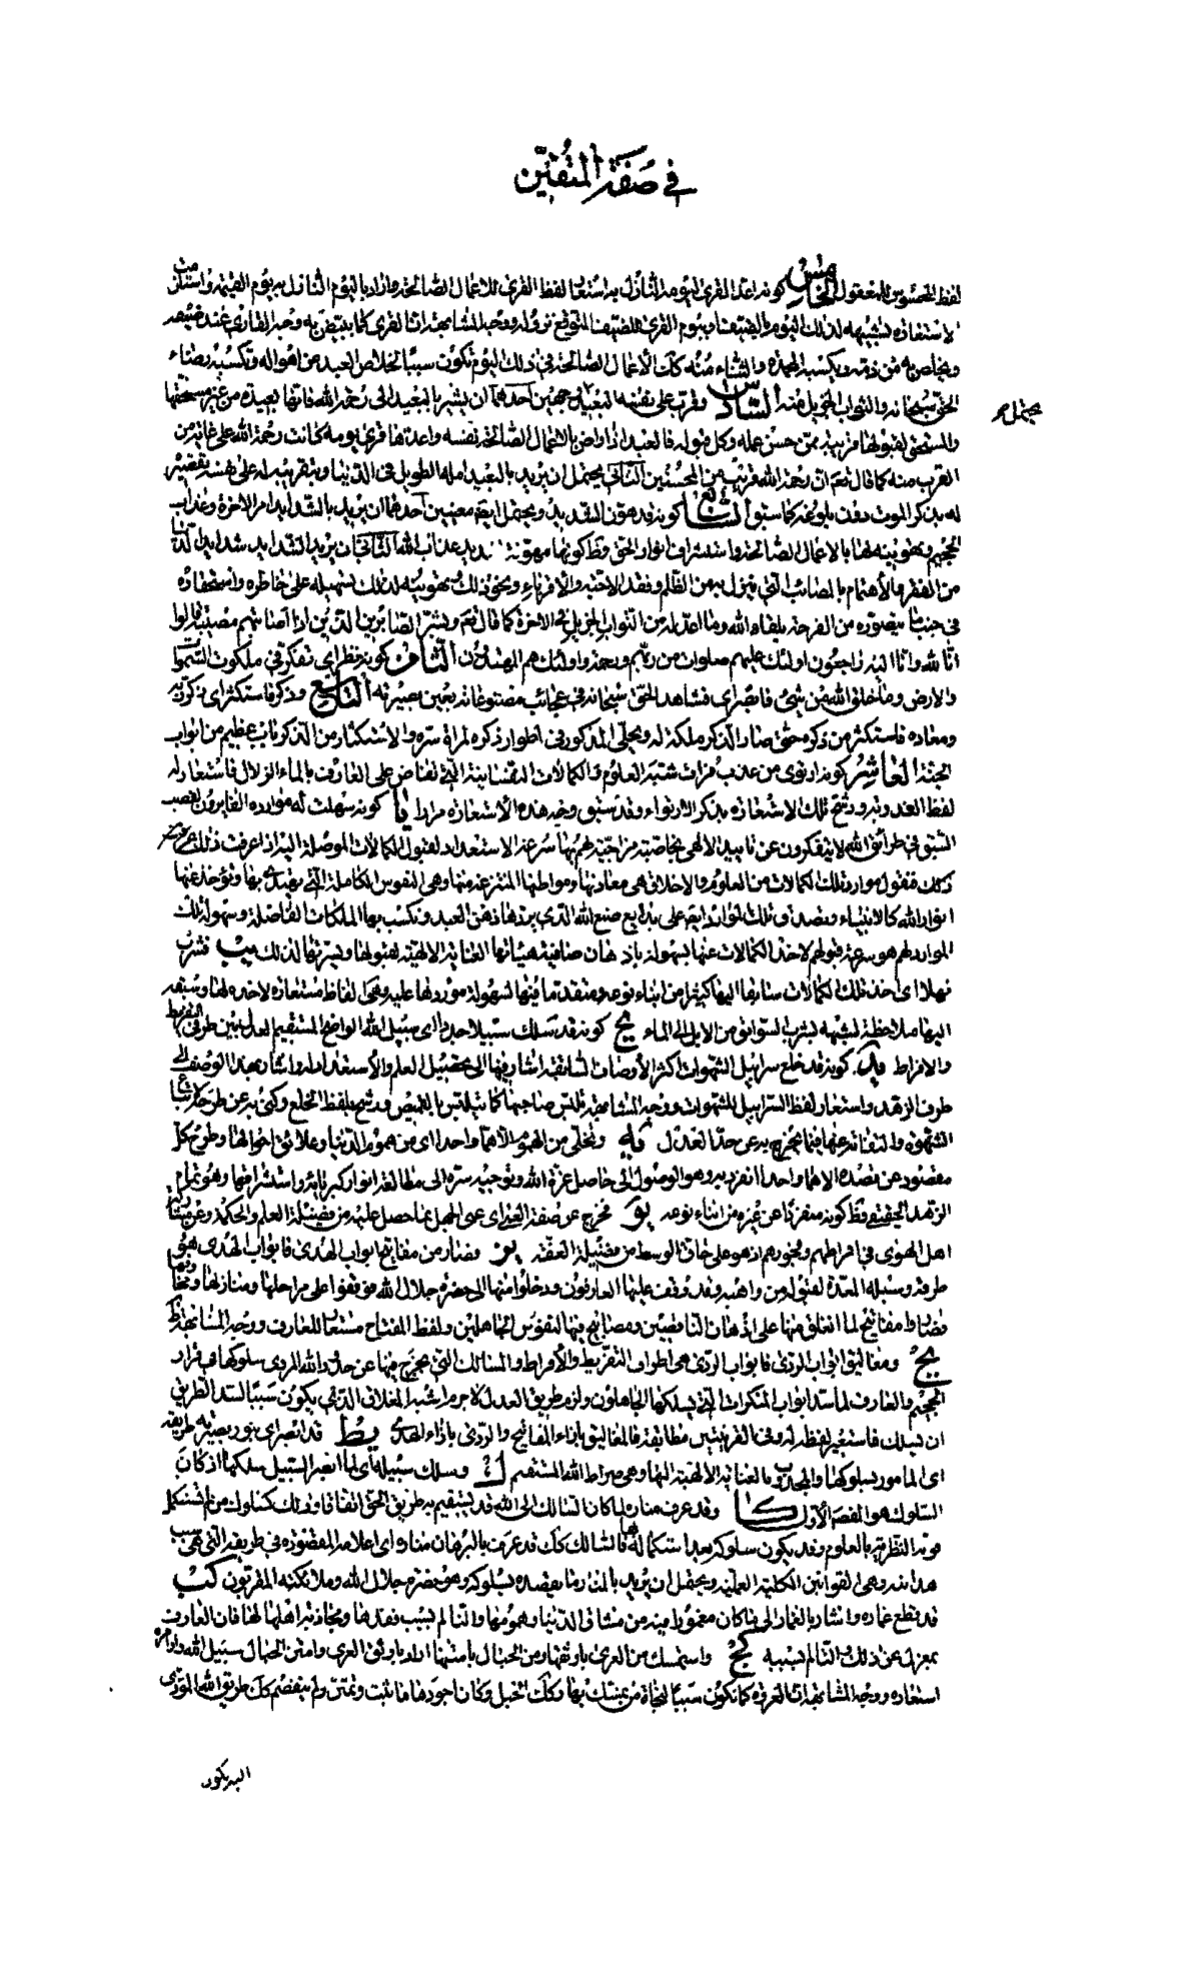 في صفة المتقين
لفظ المحسوس للمعقول الخامس كونه اعد القرى ليومه النازل به استعار لفظ القرى للاعمال الصالحة واراد باليوم النازل به يوم القيمة واستلزمت
الاستعارة تشبيهه لذلك اليوم بالضيف او بيوم القرى للضيف المتوقع نزوله ووجه المشابهة ان القرى كما يبيض به وجه القارى عند ضيفه
ويخلص به من ذمه ويكسبه المحمدة والثناء منه كك الاعمال الصالحة في ذلك اليوم تكون سببا لخلاص العبد من اهواله وتكسبه رضاء
الحق سبحانه والثواب الجزيل منه السادس وقرب على نفسه البعيد وجهين احدهما ان يشير بالبعيد الى رحمة الله فانها بعيدة من غير مستحقها
يحتمل
والمستحق لقبولها قريبة ممن حسن عمله وكل قبوله فالعبد اذا راض بالاعمال الصالحة نفسه واعدها قرى يومه كانت رحمة الله على غاية من
القرب منه كما قال تعم ان رحمة الله قريب من المحسنين الثاني يحتمل ان يريد بالبعيد امله الطويل في الدنيا وبتقريبه له على نفسه تقصيره
له بذكر الموت دون بلوغه كما سبق السابع كونه قد هون الشديد ويحتمل ايضا معنيين احدهما ان يريد بالشديد امر الاخرة وعذاب
الجحيم وتهوينه لها بالاعمال الصالحة واستشراف انوار الحق وظ كونها مهونة لشديد عذاب الله الثاني ان يريد بالشديد شدايد الدنيا
من الفقر والاهتمام بالمصائب التي تنزل به من الظلم وفقد الاحبة والاقرباء ونحو ذلك وتهوينه لذلك تسهيله على خاطره واستحقاره
في جنب ما يتصوره من الفرحة بلقاء الله وما اعد له من الثواب الجزيل في الاخرة كما قال تعم وبشر الصابرين الذين اذا اصابتهم مصيبة قالوا
انا لله وانا اليه راجعون اولئك عليهم صلوات من ربهم ورحمة واولئك هم المهتدون الثامن كونه نظر اى تفكر في ملكوت السموات
والارض وما خلق الله من شئ فابصر اى فشاهد الحق سبحانه في عجائب مصنوعاته بعين بصيرته التاسع وذكر فاستكثر اى ذكر ربه
ومعاده فاستكثر من ذكره حتى صار الذكر ملكة له وتجلى المذكور في اطوار ذكره لمرآة سره والاستكثار من الذكر باب عظيم من ابواب
الجنة العاشر كونه ارتوى من عذب فرات شبه العلوم والكمالات النفسانية التي تفاض على العارف بالماء الزلال فاستعار له
لفظ العذوبة ورشح تلك الاستعارة بذكر الارتواء وقد سبق وجه هذه الاستعارة مرارا يا كونه سهلت له موارده الفايزون بقصب
السبق في طرائق الله لا ينفكون عن تاييد الالهى بخاصية مزاجية لهم بها سرعة الاستعداد لقبول الكمالات الموصلة اليه اذا عرفت ذلك
ذلك فنقول موارد تلك الكمالات من العلوم والاخلاق هى معادنها ومواطنها المنتزعة منها وهى النفوس الكاملة التي يهتدى بها وتؤخذ عنها
انوار الله كالانبياء وتصدق تلك الموارد ايضا على بدايع صنع الله الذي يردها ذهن العبد وتكسب بها الملكات الفاضلة وسهولة تلك
الموارد لهم هو سرعة قبولهم لاخذ الكمالات عنها بسهولة باذهان صافية هيأتها العناية الالهية لقبولها ويسرتها لذلك يب فشرب
نهلا اى اخذ تلك الكمالات سابقا اليها كثيرا من ابناء نوعه ومتقدما فيها لسهولة موردها عليه وهى الفاظ مستعارة لاخذه لها وسبقه
اليها ملاحظة لشبهه بشرب السوابق من الابل الى الماء يج كونه قد سلك سبيلا جددا اى سبيل الله الواضح المستقيم العدل بين طرفى التفريط
والافراط يد كونه قد خلع سرابيل الشهوات اكثر الاوصاف السابقة اشار فيها الى تحصيل العلم والاستعداد له واشار بهذا الوصف الى
طرف الزهد واستعار لفظ السرابيل للشهوات ووجه المشابهة تلبس صاحبها كما يتلبس بالقميص ورشح بلفظ الخلع وكنى به عن طرحه لاتباع
الشهوة والتفاته عنها فيما يخرج به عن حد العدل يه وتخلى من الهموم الا هما واحدا اى من هموم الدنيا وعلائق احوالها وطرح كل
مقصود عن قصده الا هما واحدا انفرد به وهو الوصول الى حاصل عزة الله وتوجيه سره الى مطالعة انوار كبريائه واستشرافها وهو تمام
الزهد الحقيقي وظ كونه منفردا عن غيره من ابناء نوعه يو فخرج عن صفة العمى اى عمى الجهل بما حصل عليه من فضيلة العلم والحكمة وعن مشاركة
اهل الهوى في افراطهم وفجورهم اذ هو على حاق الوسط من فضيلة العفة يز وصار من مفاتيح ابواب الهدى فابواب الهدى هى
طرقه وسبله المعدة لقبوله من واهبه وقد وقف عليها العارفون ودخلوا منها الى حضرة جلال الله فوقفوا على مراحلها ومنازلها ومخاوفها
فصاروا مفاتيح لما انغلق منها على اذهان الناقصين ومصابيح فيها لنفوس الجاهلين ولفظ المفتاح مستعار للعارف ووجه المشابهة ظ
يح ومغاليق ابواب الردى فابواب الردى هى اطراف التفريط والافراط والمسالك التي يخرج فيها عن حدود الله المردى سلوكها في قرار
الجحيم والعارف لما سد ابواب المنكرات التي يسلكها الجاهلون ولزم طريق العدل لا جرم اشبه المغلاق الذي يكون سببا لسد الطريق
ان تسلك فاستعير لفظه له وفى القرينتين مطابقة فالمغاليق بازاء المفاتيح والردى بازاء الهدى يط قد ابصر اى بنور بصيرته طريقه
اى المامور بسلوكها والمجذوب بالعناية الالهية اليها وهى صراط الله المستقيم ك وسلك سبيله اى لما ابصر السبيل سلكها اذ كان
السلوك هو المقصد الاول كا وقد عرف مناره لما كان السالك الى الله قد يستقيم به طريق الحق اتفاقا وذلك كسلوك من لم تستكمل
قوته النظرية بالعلوم وقد يكون سلوكه بعد استكماله بها فالسالك كك قد عرف بالبرهان مناره اى اعلامه المقصودة في طريقه التي هى سبب
هدايته وهى القوانين الكلية العملية ويحتمل ان يريد بالمنار ما يقصده بسلوكه وهو حضرة جلال الله وملائكته المقربون كب
قد قطع غماره واشار بالغمار الى ما كان مغمورا فيه من مشاق الدنيا وهمومها والتألم بسبب فقدها ومجاذبة اهلها لها فان العارف
بمعزل عن ذلك والتالم بسببه كج واستمسك من العرى باوثقها ومن الحبال بامتنها اراد باوثق العرى وامتن الحبال سبيل الله واوامره
استعارة ووجه المشابهة ان العروة كما تكون سببا لنجاة من تمسك بها وكك الحبل وكان اجودها ما ثبت وتمتن ولم ينفصم كك طريق الله المؤدى
اليه يكون